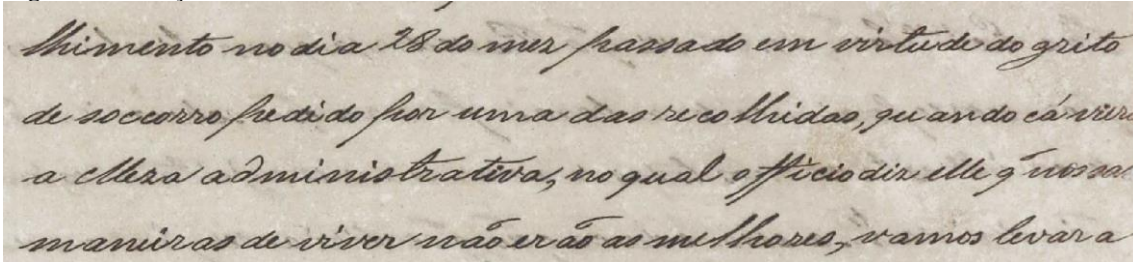 lhimento no dia 28 do mez passado em virtude do grito
de soccorro pedido por uma das recolhidas, quando cá
a Meza administrativa, no qual officio diz elle q̃ nossas
maneiras de viver não erão as melhores, vamos levar a